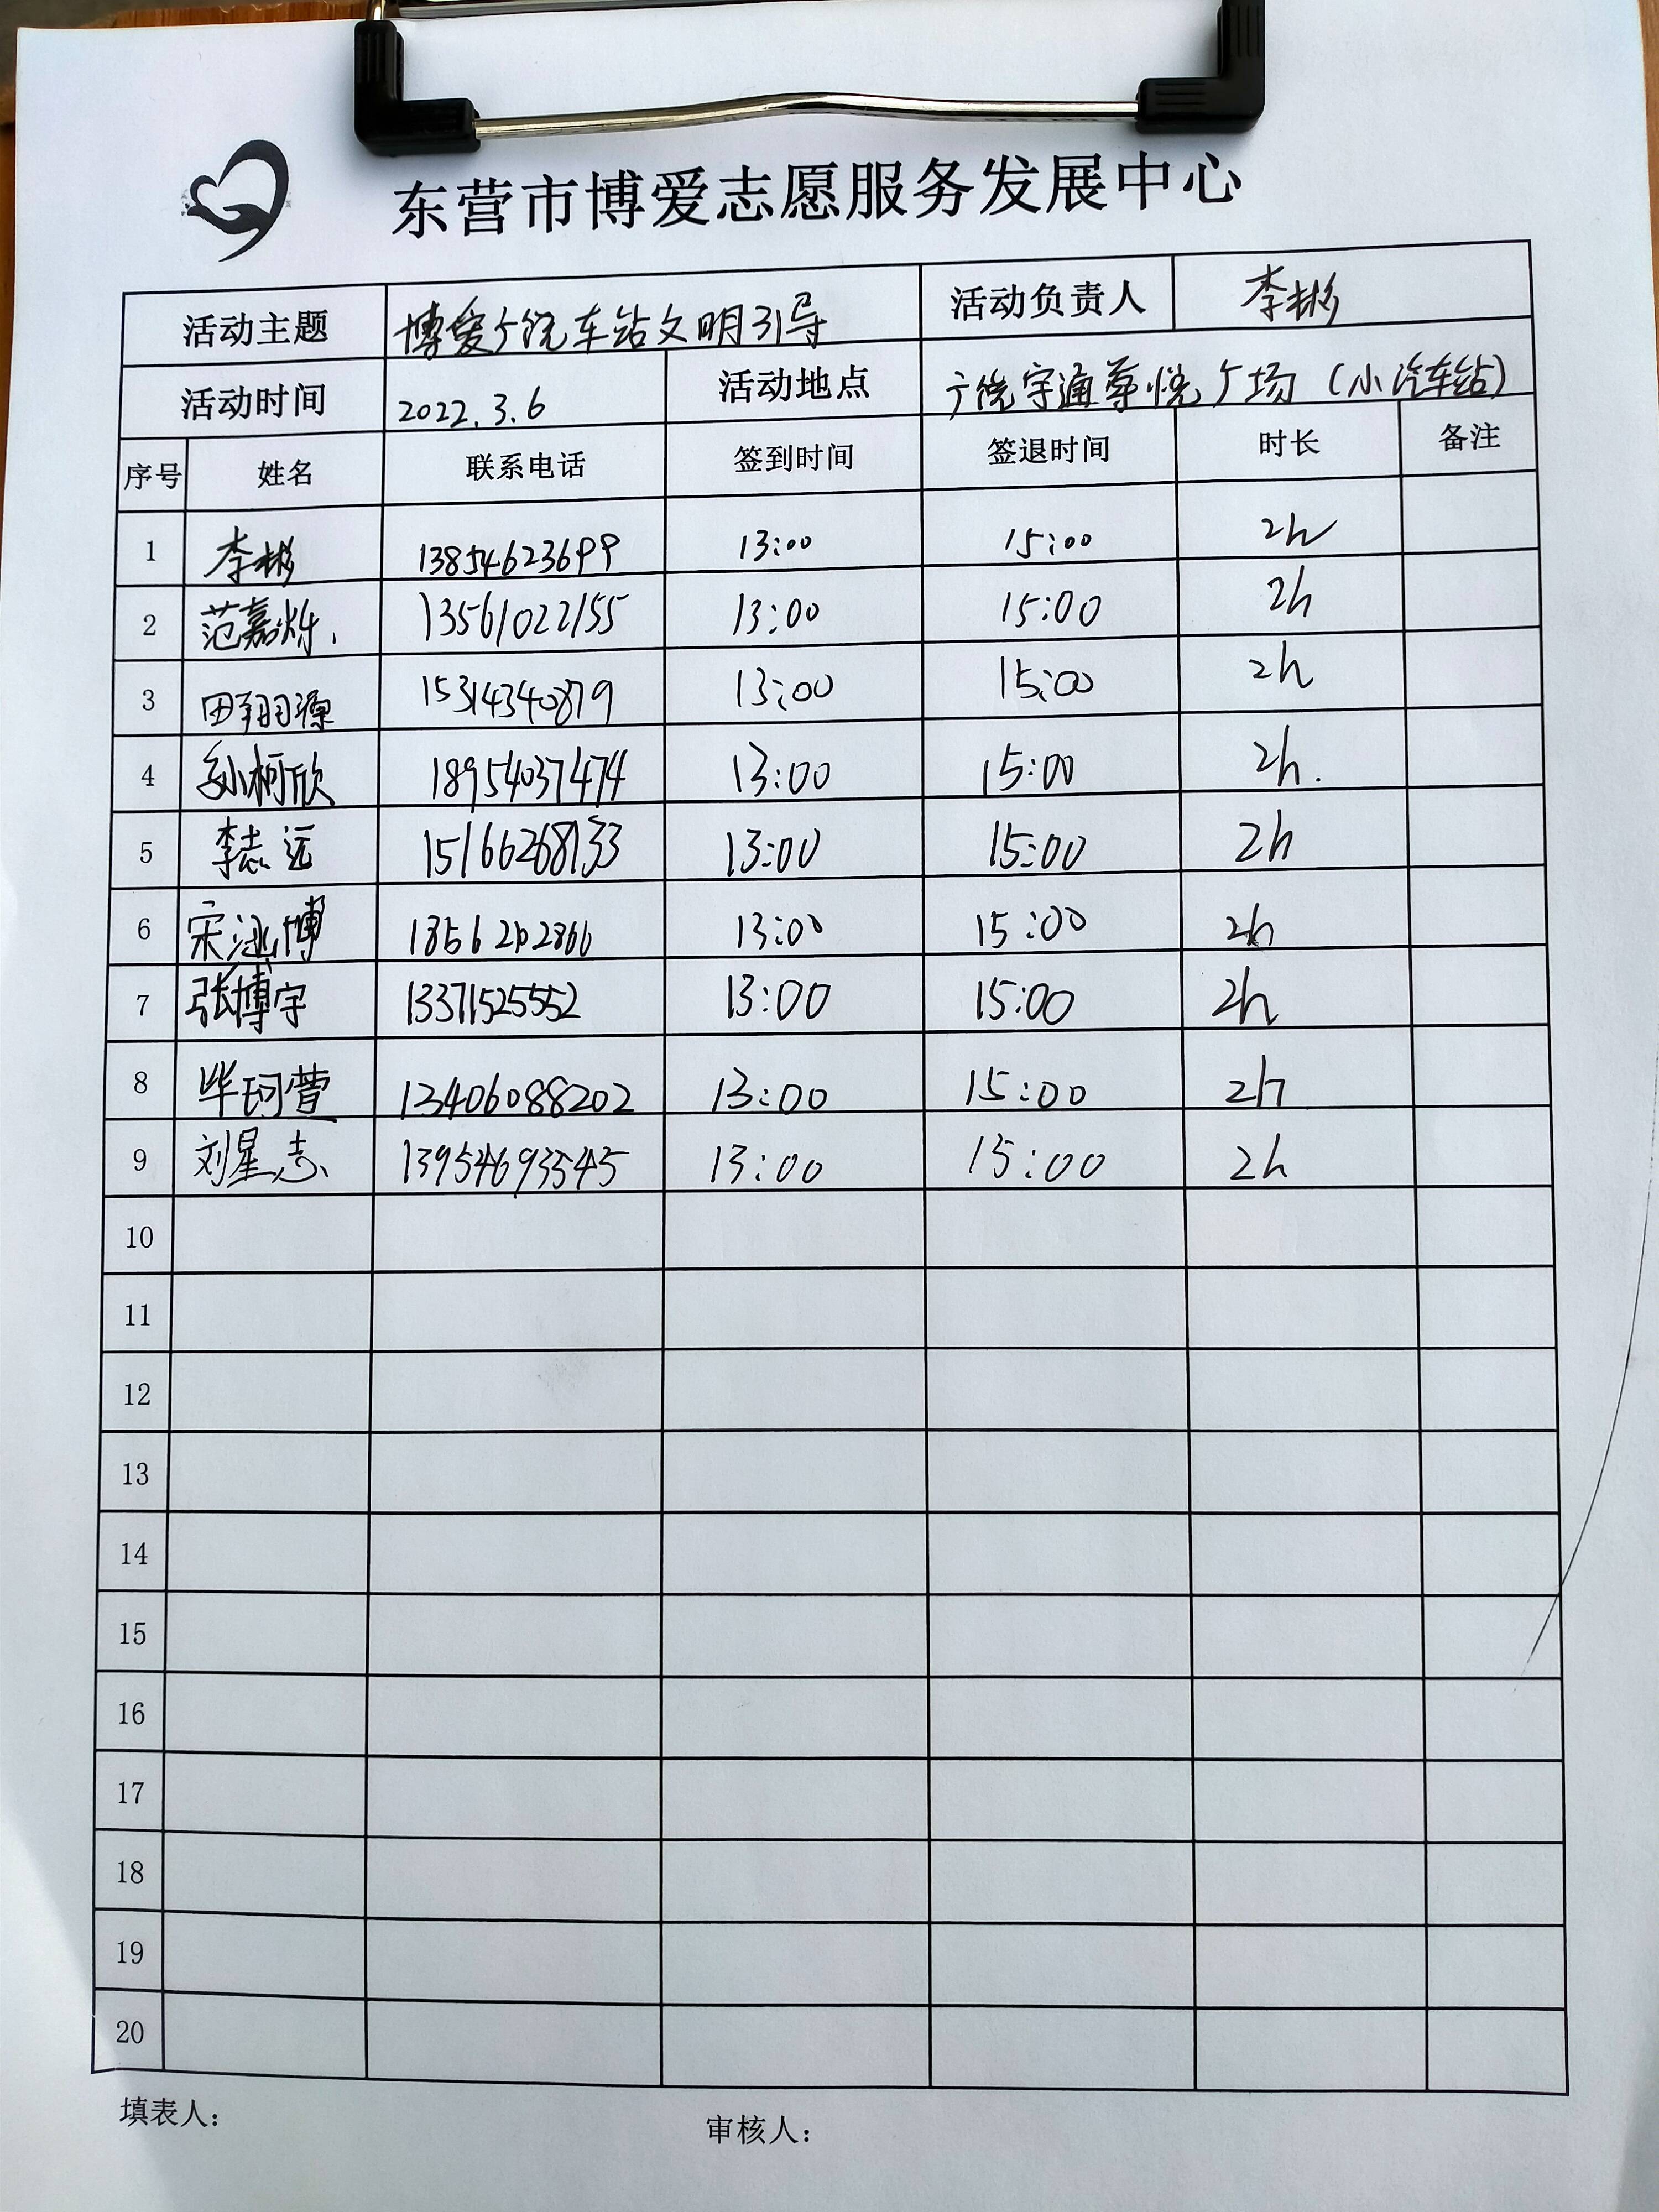 东营市博爱志愿服务发展中心
活动主题 博爱广饶车站文明引导 活动负责人 李彬
活动时间 2022.3.6 活动地点 广饶宇通尊悦广场（小汽车站）
序号 姓名 联系电话 签到时间 签退时间 时长 备注
1 李彬 13854623699 13:00 15:00 2h
2 范嘉烁. 13561022155 13:00 15:00 2h
3 田翔源 15314340879 13:00 15:00 2h
4 孙柯欣 18954037474 13:00 15:00 2h.
5 李志远 15166268133 13:00 15:00 2h
6 宋 博 13:00 15:00 2h
7 张博宇 13371525552 13:00 15:00 2h
8 毕珂萱 13406088202 13:00 15:00 2h
9 刘星志 13954693545 13:00 15:00 2h
10
11
12
13
14
15
16
17
18
19
20
填表人： 审核人：